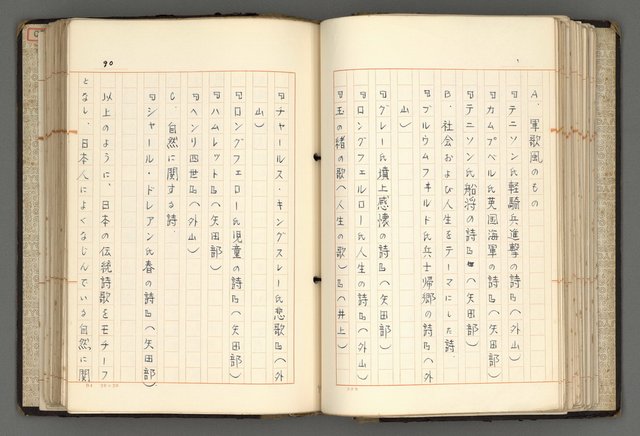 A、軍歌風のもの
『テニソン氏軽騎兵進撃の詩』(外山)
『カムプベル氏英国海軍の詩』(矢田部)
『テニソン氏船将の詩』(矢田部)
B、社会および人生をテーマにした詩.
『ブルウムフヰルド氏兵士帰郷の詩』(外
山)
『グレー氏墳上感懐の詩』(矢田部)
『ロングフェルロー氏人生の詩』(外山)
『玉の緒の歌(人生の歌)』(井上)
90
『チャールス・キングスレー氏悲歌』(外
山)
『ロングフェロー氏児童の詩』(矢田部)
『ハムレット』(矢田部)
『ヘンリ四世』(外山)
C、自然に関する詩.
『シャール・ドレアン氏春の詩』(矢田部)
以上のように、日本の伝統詩歌をモチーフ
となし、日本人によくなじんでいる自然に関